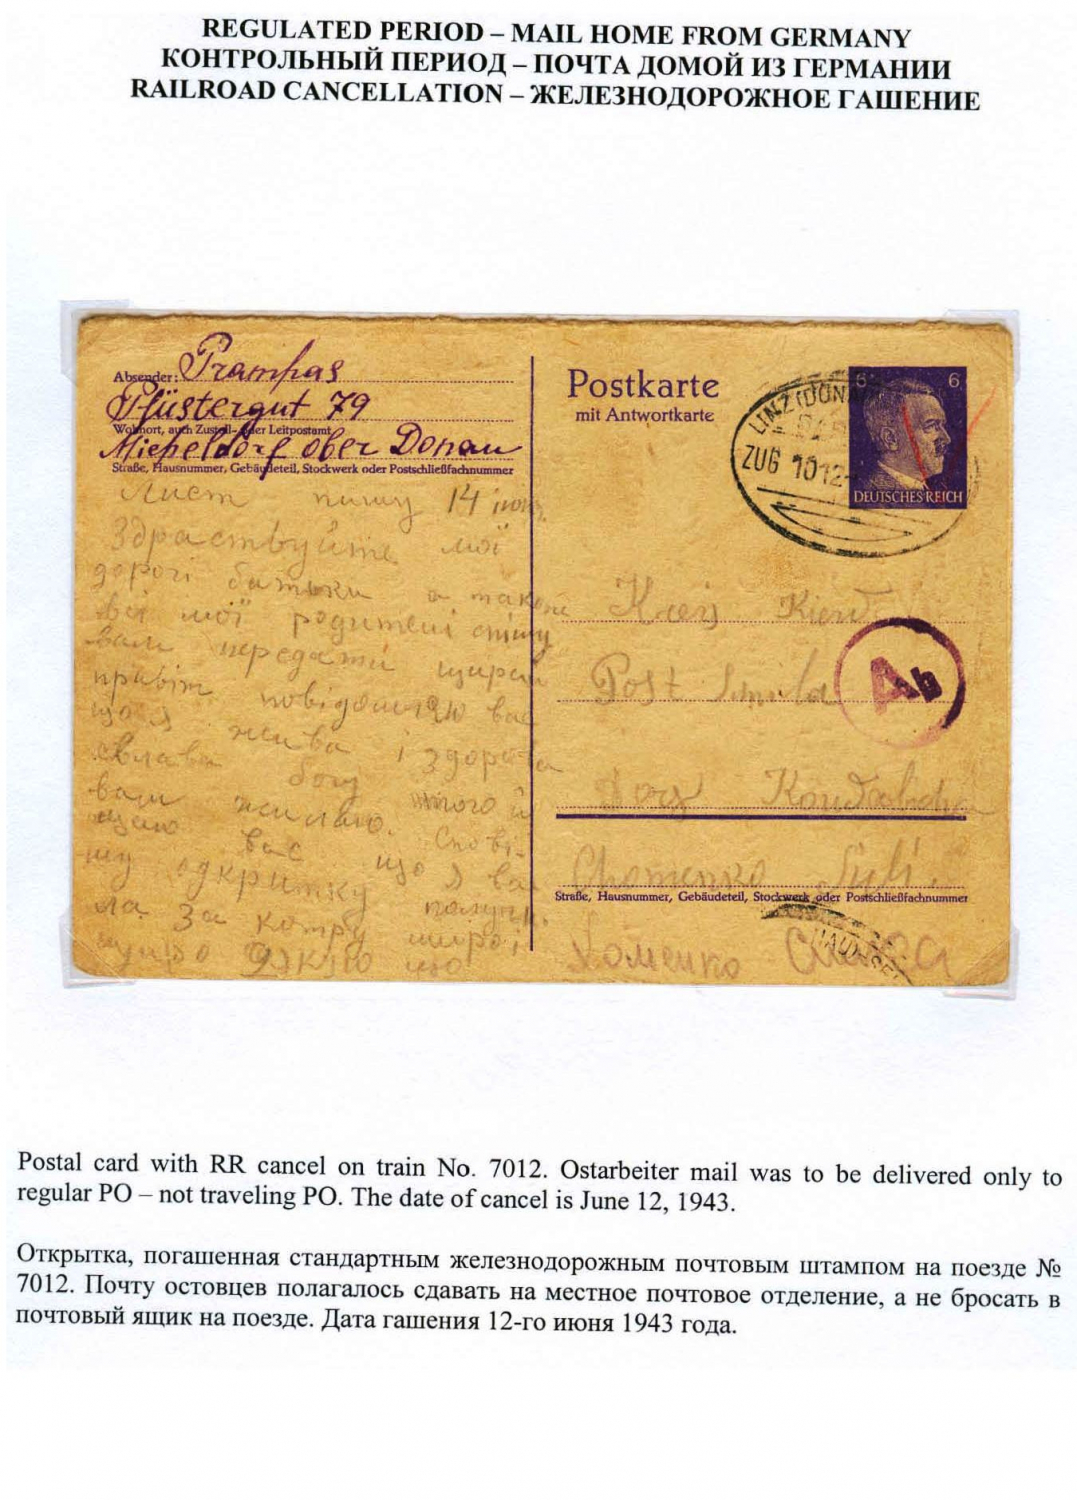 REGULATED PERIOD – MAIL HOME FROM GERMANY
КОНТРОЛЬНЫЙ ПЕРИОД – ПОЧТА ДОМОЙ ИЗ ГЕРМАНИИ
RAILROAD CANCELLATION – ЖЕЛЕЗНОДОРОЖНОЕ ГАШЕНИЕ
Absender: Prampas
Pfüstergut 79
Wohnort, auch Zustell- oder Leitpostamt
Micheldorf ober Donau
Straße, Hausnummer, Gebäudeteil, Stockwerk oder Postschließfachnummer
Лист пишу 14
Здраствуйте мої
дорогі батьки а також
всі мої родителі спішу
вам передати щирий
привіт повідомляю вас
що я жива і здорова
слава богу того й
вам желаю. Спові-
щаю вас що я ва
шу одкритку получи
ла за котру широ і
щиро дякую що
Postkarte
mit Antwortkarte
LINZ (DONAU)
ZUG 1012
6 6
DEUTSCHES REICH
Kiew
Post Smila
Ab
Dorf
Chomenko
Straße, Hausnummer, Gebäudeteil, Stockwerk oder Postschließfachnummer
Хоменко
Postal card with RR cancel on train No. 7012. Ostarbeiter mail was to be delivered only to
regular PO – not traveling PO. The date of cancel is June 12, 1943.
Открытка, погашенная стандартным железнодорожным почтовым штампом на поезде №
7012. Почту остовцев полагалось сдавать на местное почтовое отделение, а не бросать в
почтовый ящик на поезде. Дата гашения 12-го июня 1943 года.